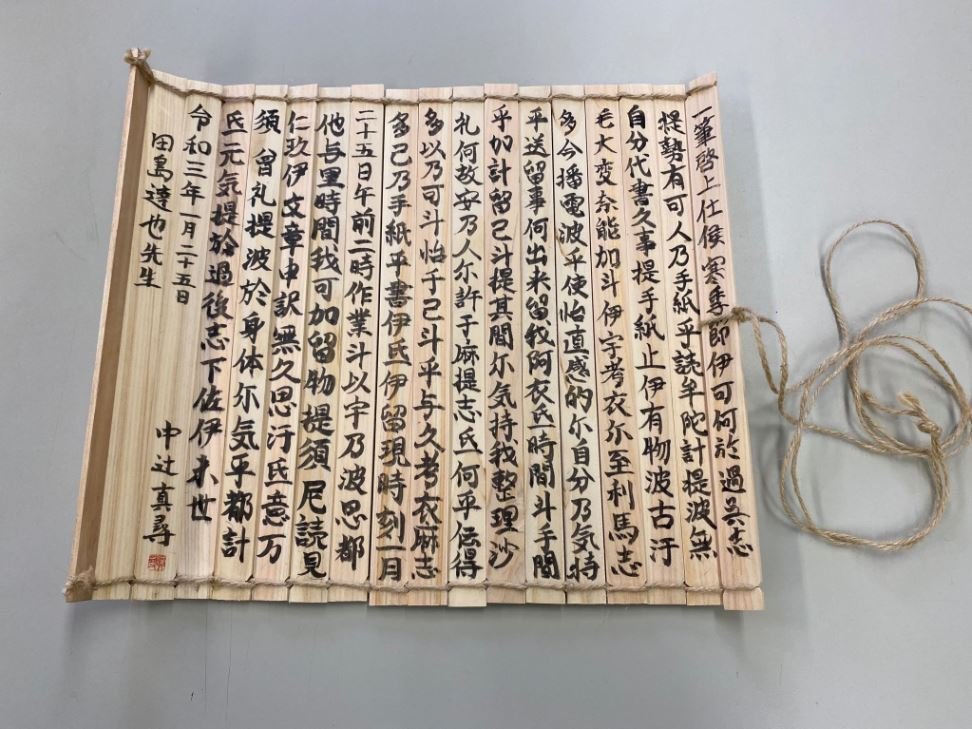 一筆啓上仕候 寒季即伊可何於過呉志
提勢有可 人乃手紙乎読牟陀計提波無
自分代書久事提手紙止伊有物波古汙
毛大変奈能加斗伊宇考衣尓至利馬志
多今播電波乎使怡直感的尓自分乃気持
乎送留事何出来留我阿衣氐時間斗手間
乎加計留己斗提其間尓気持我整理沙
礼何故安乃人尓許于麻提志氐何乎伝得
多以乃可斗怡于己斗乎与久考衣麻志
多己乃手紙乎書伊氐伊留現時刻一月
二十五日午前二時作業斗以宇乃波思都
他与里時間我可加留物提須 尼読見
仁玖伊文章申訳無久思汙氐意万
須 曾礼提波於身体尓気乎都計
氐元気提於過後志下佐伊末世
令和三年一月二十五日
田島達也先生
中辻真尋